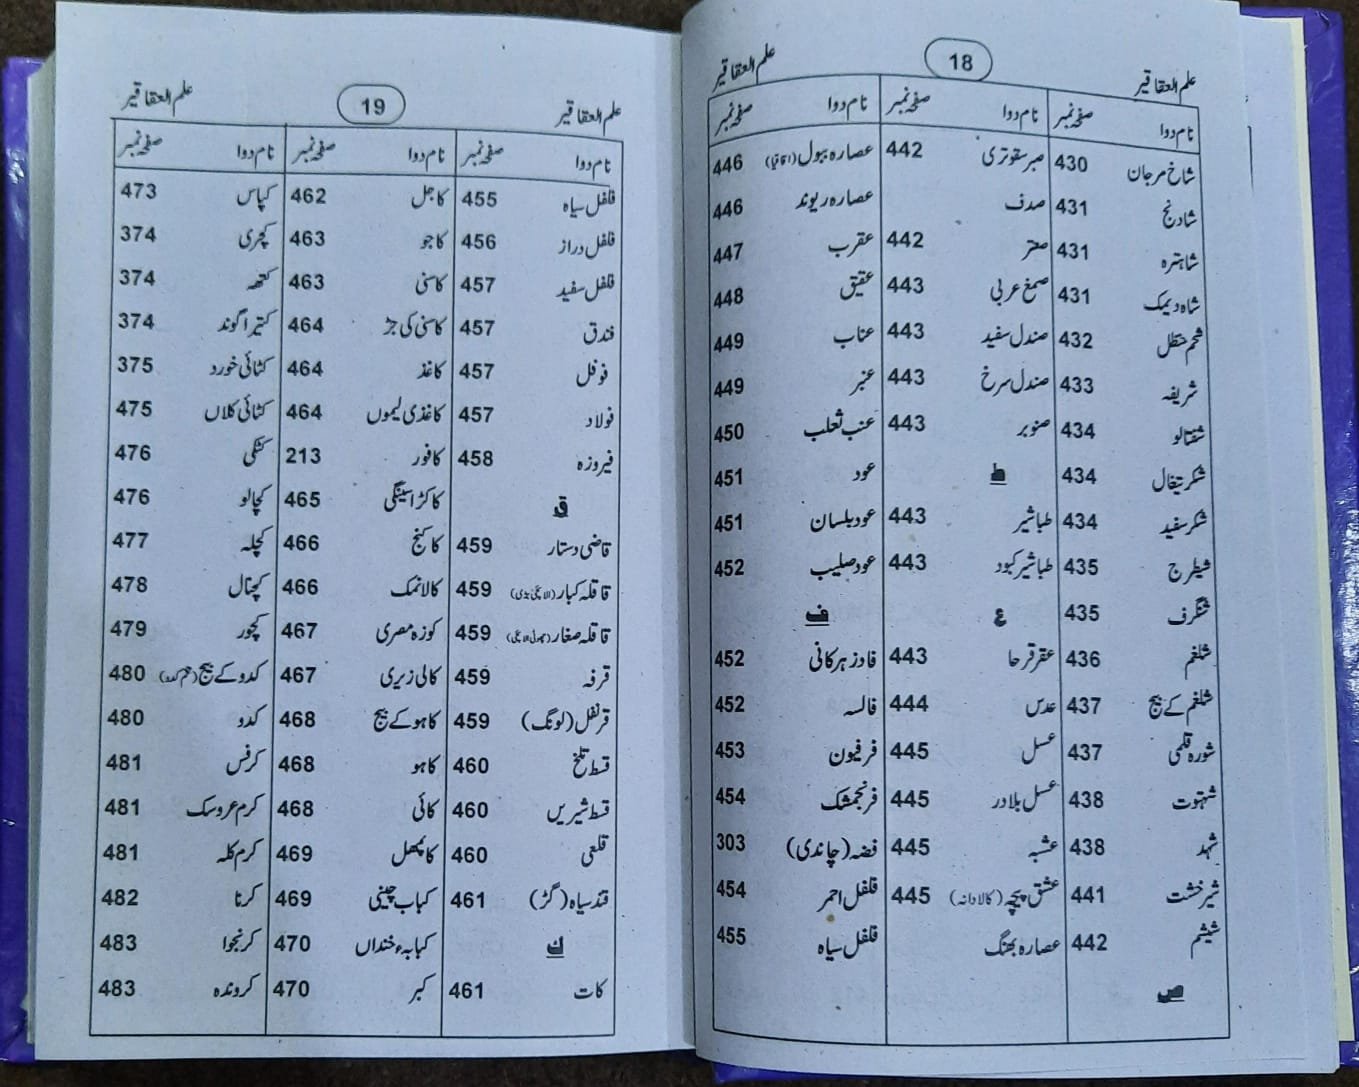 علم العقاقیر
18
علم العقاقیر
نام دوا صفحہ نمبر
شاخ مرجان 430
شادنج 431
شاہترہ 431
شاہ دیمک 431
شحم حنظل 432
شریفہ 433
شفتالو 434
شکر تیغال 434
شکر سفید 434
شیطرج 435
شنگرف 435
شلغم 436
شلغم کے بیج 437
شورہ قلمی 437
شہتوت 438
شہد 438
شیر خشت 441
شیشم 442
ص
نام دوا صفحہ نمبر
صبر سقوتری 442
صدف
صعتر 442
صمغ عربی 443
صندل سفید 443
صندل سرخ 443
صنوبر 443
ط
طباشیر 443
طباشیر کبود 443
ع
عقرقرحا 443
عدس 444
عسل 445
عسل بلادر 445
عشبہ 445
عشق پیچہ (کالا دانہ) 445
عصارہ بھنگ
نام دوا صفحہ نمبر
عصارہ ببول (اقاقیا) 446
عصارہ ریوند 446
عقرب 447
عقیق 448
عناب 449
عنبر 449
عنب ثعلب 450
عود 451
عود بلسان 451
عود صلیب 452
ف
فادزہر کانی 452
فالسہ 452
فرفیون 453
فرنجمشک 454
فضہ (چاندی) 303
فلفل احمر 454
فلفل سیاہ 455
علم العقاقیر
19
علم العقاقیر
نام دوا صفحہ نمبر
فلفل سیاہ 455
فلفل دراز 456
فلفل سفید 457
فندق 457
فوفل 457
فولاد 457
فیروزہ 458
ق
قاضی دستار 459
قاقلہ کبار (الائچی بڑی) 459
قاقلہ صغار (چھوٹی الائچی) 459
قرفہ 459
قرنفل (لونگ) 459
قسط تلخ 460
قسط شیریں 460
قلعی 460
قند سیاہ (گڑ) 461
ک
کات 461
نام دوا صفحہ نمبر
کاجل 462
کاجو 463
کاسنی 463
کاسنی کی جڑ 464
کاغذ 464
کاغذی لیموں 464
کافور 213
کاکڑا سینگی 465
کاکنج 466
کالا نمک 466
کوزہ مصری 467
کالی زیری 467
کاہو کے بیج 468
کاہو 468
کائی 468
کائپھل 469
کباب چینی 469
کبابہء خنداں 470
کبر 470
نام دوا صفحہ نمبر
کپاس 473
کچری 374
کتھہ 374
کتیرا گوند 374
کٹائی خورد 375
کٹائی کلاں 475
کٹکی 476
کچالو 476
کچلہ 477
کچنال 478
کچور 479
کدو کے بیج (تخم کدو) 480
کدو 480
کرفس 481
کرم عروسک 481
کرم کلہ 481
کرنا 482
کرنجوا 483
کروندہ 483